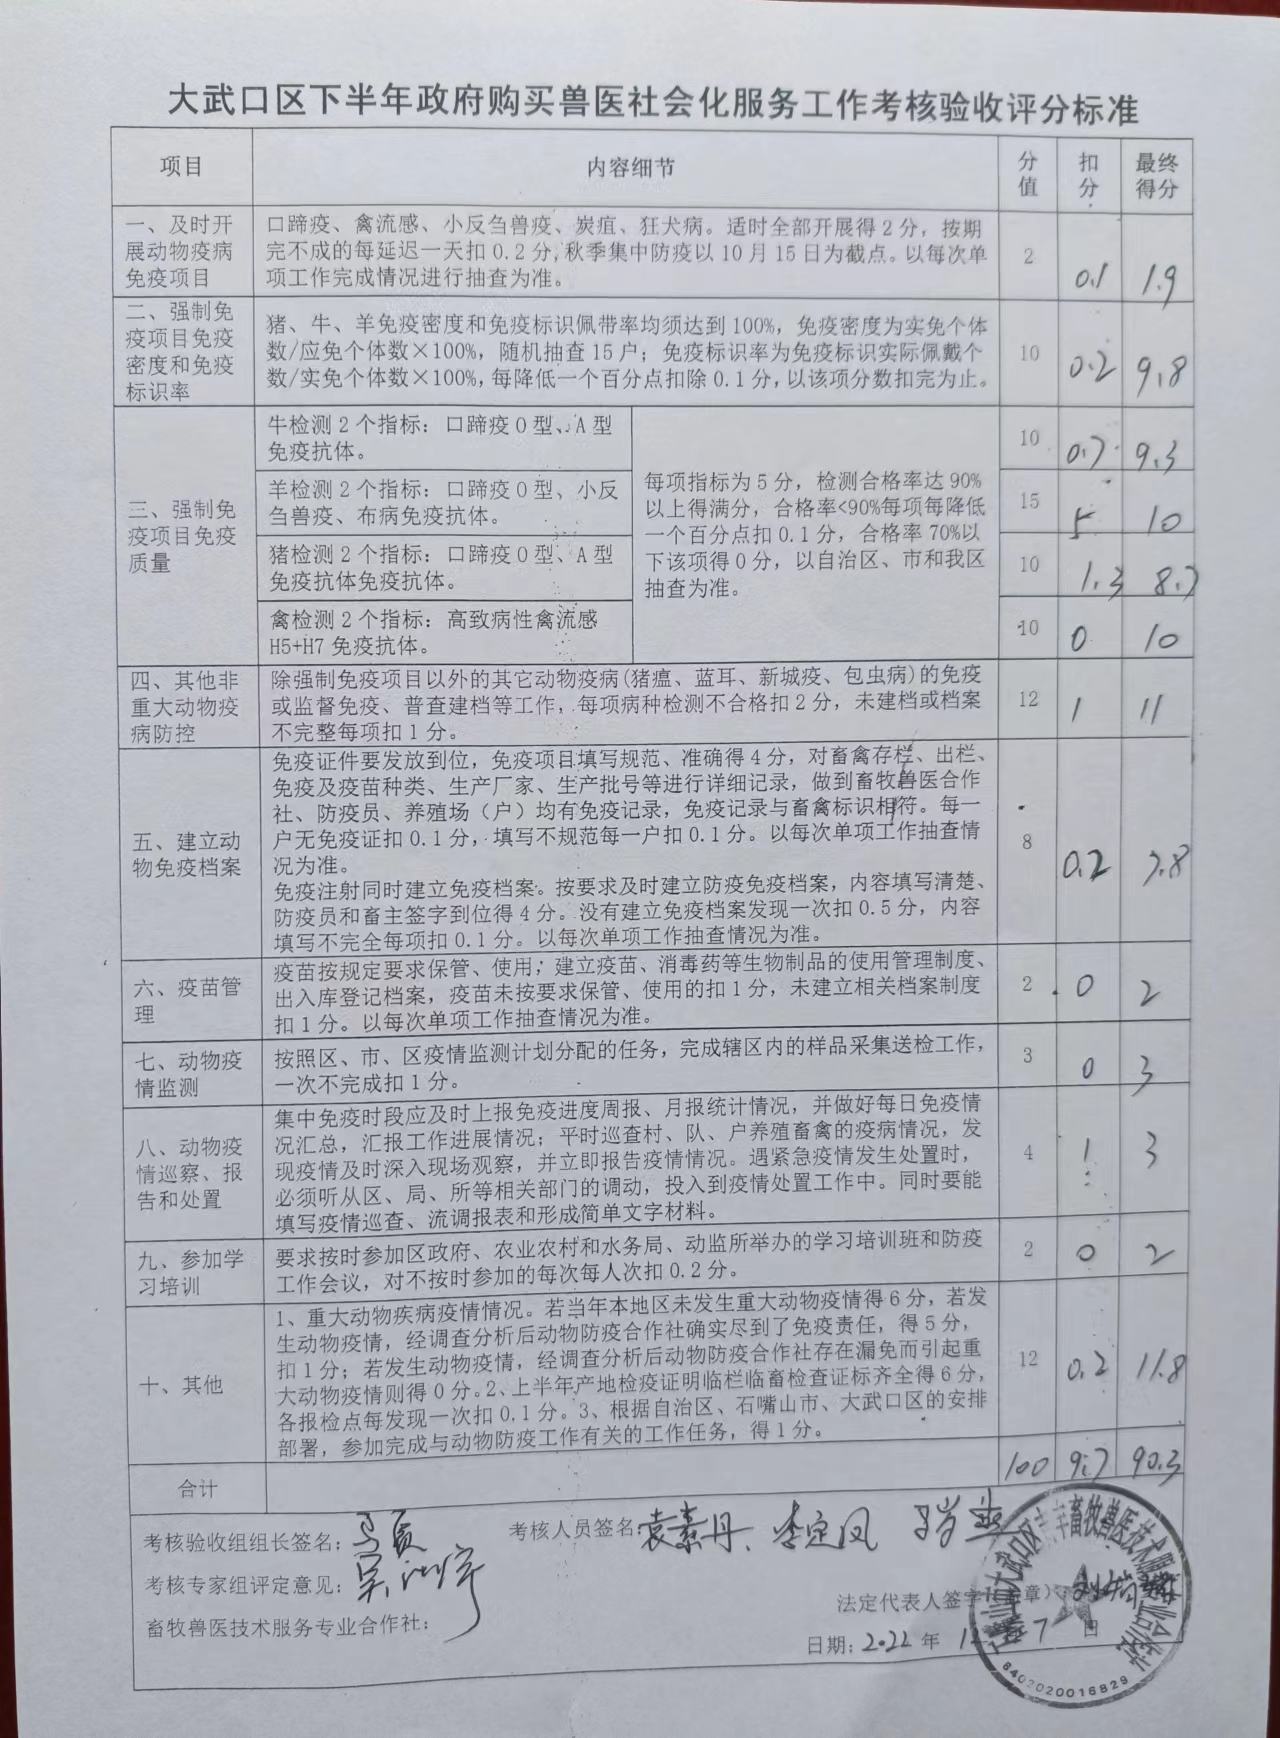 大武口区下半年政府购买兽医社会化服务工作考核验收评分标准
项目
内容细节
分
值
扣
分
最终
得分
一、及时开
展动物疫病
免疫项目
口蹄疫、禽流感、小反刍兽疫、炭疽、狂犬病。适时全部开展得2分，按期
完不成的每延迟一天扣0.2分,秋季集中防疫以10月15日为截点。以每次单
项工作完成情况进行抽查为准。
2
0.1
1.9
二、强制免
疫项目免疫
密度和免疫
标识率
猪、牛、羊免疫密度和免疫标识佩带率均须达到100%，免疫密度为实免个体
数/应免个体数×100%，随机抽查15户；免疫标识率为免疫标识实际佩戴个
数/实免个体数×100%，每降低一个百分点扣除0.1分，以该项分数扣完为止。
10
0.2
9.8
三、强制免
疫项目免疫
质量
牛检测2个指标：口蹄疫O型、A型
免疫抗体。
10
0.7
9.3
羊检测2个指标：口蹄疫O型、小反
刍兽疫、布病免疫抗体。
15
5
10
猪检测2个指标：口蹄疫O型、A型
免疫抗体免疫抗体。
10
1.3
8.7
禽检测2个指标：高致病性禽流感
H5+H7免疫抗体。
10
0
10
每项指标为5分，检测合格率达90%
以上得满分，合格率<90%每项每降低
一个百分点扣0.1分，合格率70%以
下该项得0分，以自治区、市和我区
抽查为准。
四、其他非
重大动物疫
病防控
除强制免疫项目以外的其它动物疫病(猪瘟、蓝耳、新城疫、包虫病)的免疫
或监督免疫、普查建档等工作，每项病种检测不合格扣2分，未建档或档案
不完整每项扣1分。
12
1
11
五、建立动
物免疫档案
免疫证件要发放到位，免疫项目填写规范、准确得4分，对畜禽存栏、出栏、
免疫及疫苗种类、生产厂家、生产批号等进行详细记录，做到畜牧兽医合作
社、防疫员、养殖场（户）均有免疫记录，免疫记录与畜禽标识相符。每一
户无免疫证扣0.1分，填写不规范每一户扣0.1分。以每次单项工作抽查情
况为准。
免疫注射同时建立免疫档案。按要求及时建立防疫免疫档案，内容填写清楚、
防疫员和畜主签字到位得4分。没有建立免疫档案发现一次扣0.5分，内容
填写不完全每项扣0.1分。以每次单项工作抽查情况为准。
8
0.2
7.8
六、疫苗管
理
疫苗按规定要求保管、使用；建立疫苗、消毒药等生物制品的使用管理制度、
出入库登记档案，疫苗未按要求保管、使用的扣1分，未建立相关档案制度
扣1分。以每次单项工作抽查情况为准。
2
0
2
七、动物疫
情监测
按照区、市、区疫情监测计划分配的任务，完成辖区内的样品采集送检工作，
一次不完成扣1分。
3
0
3
八、动物疫
情巡察、报
告和处置
集中免疫时段应及时上报免疫进度周报、月报统计情况，并做好每日免疫情
况汇总，汇报工作进展情况；平时巡查村、队、户养殖畜禽的疫病情况，发
现疫情及时深入现场观察，并立即报告疫情情况。遇紧急疫情发生处置时，
必须听从区、局、所等相关部门的调动，投入到疫情处置工作中。同时要能
填写疫情巡查、流调报表和形成简单文字材料。
4
1
3
九、参加学
习培训
要求按时参加区政府、农业农村和水务局、动监所举办的学习培训班和防疫
工作会议，对不按时参加的每次每人次扣0.2分。
2
0
2
十、其他
1、重大动物疾病疫情情况。若当年本地区未发生重大动物疫情得6分，若发
生动物疫情，经调查分析后动物防疫合作社确实尽到了免疫责任，得5分，
扣1分；若发生动物疫情，经调查分析后动物防疫合作社存在漏免而引起重
大动物疫情则得0分。2、上半年产地检疫证明临栏临畜检查证标齐全得6分，
各报检点每发现一次扣0.1分。3、根据自治区、石嘴山市、大武口区的安排
部署，参加完成与动物防疫工作有关的工作任务，得1分。
12
0.2
11.8
合计
100
9.7
90.3
考核验收组组长签名：
考核人员签名 袁素丹、李定风
考核专家组评定意见：
法定代表人签字（盖章）
畜牧兽医技术服务专业合作社：
日期：2022年 7 日
6402020016829